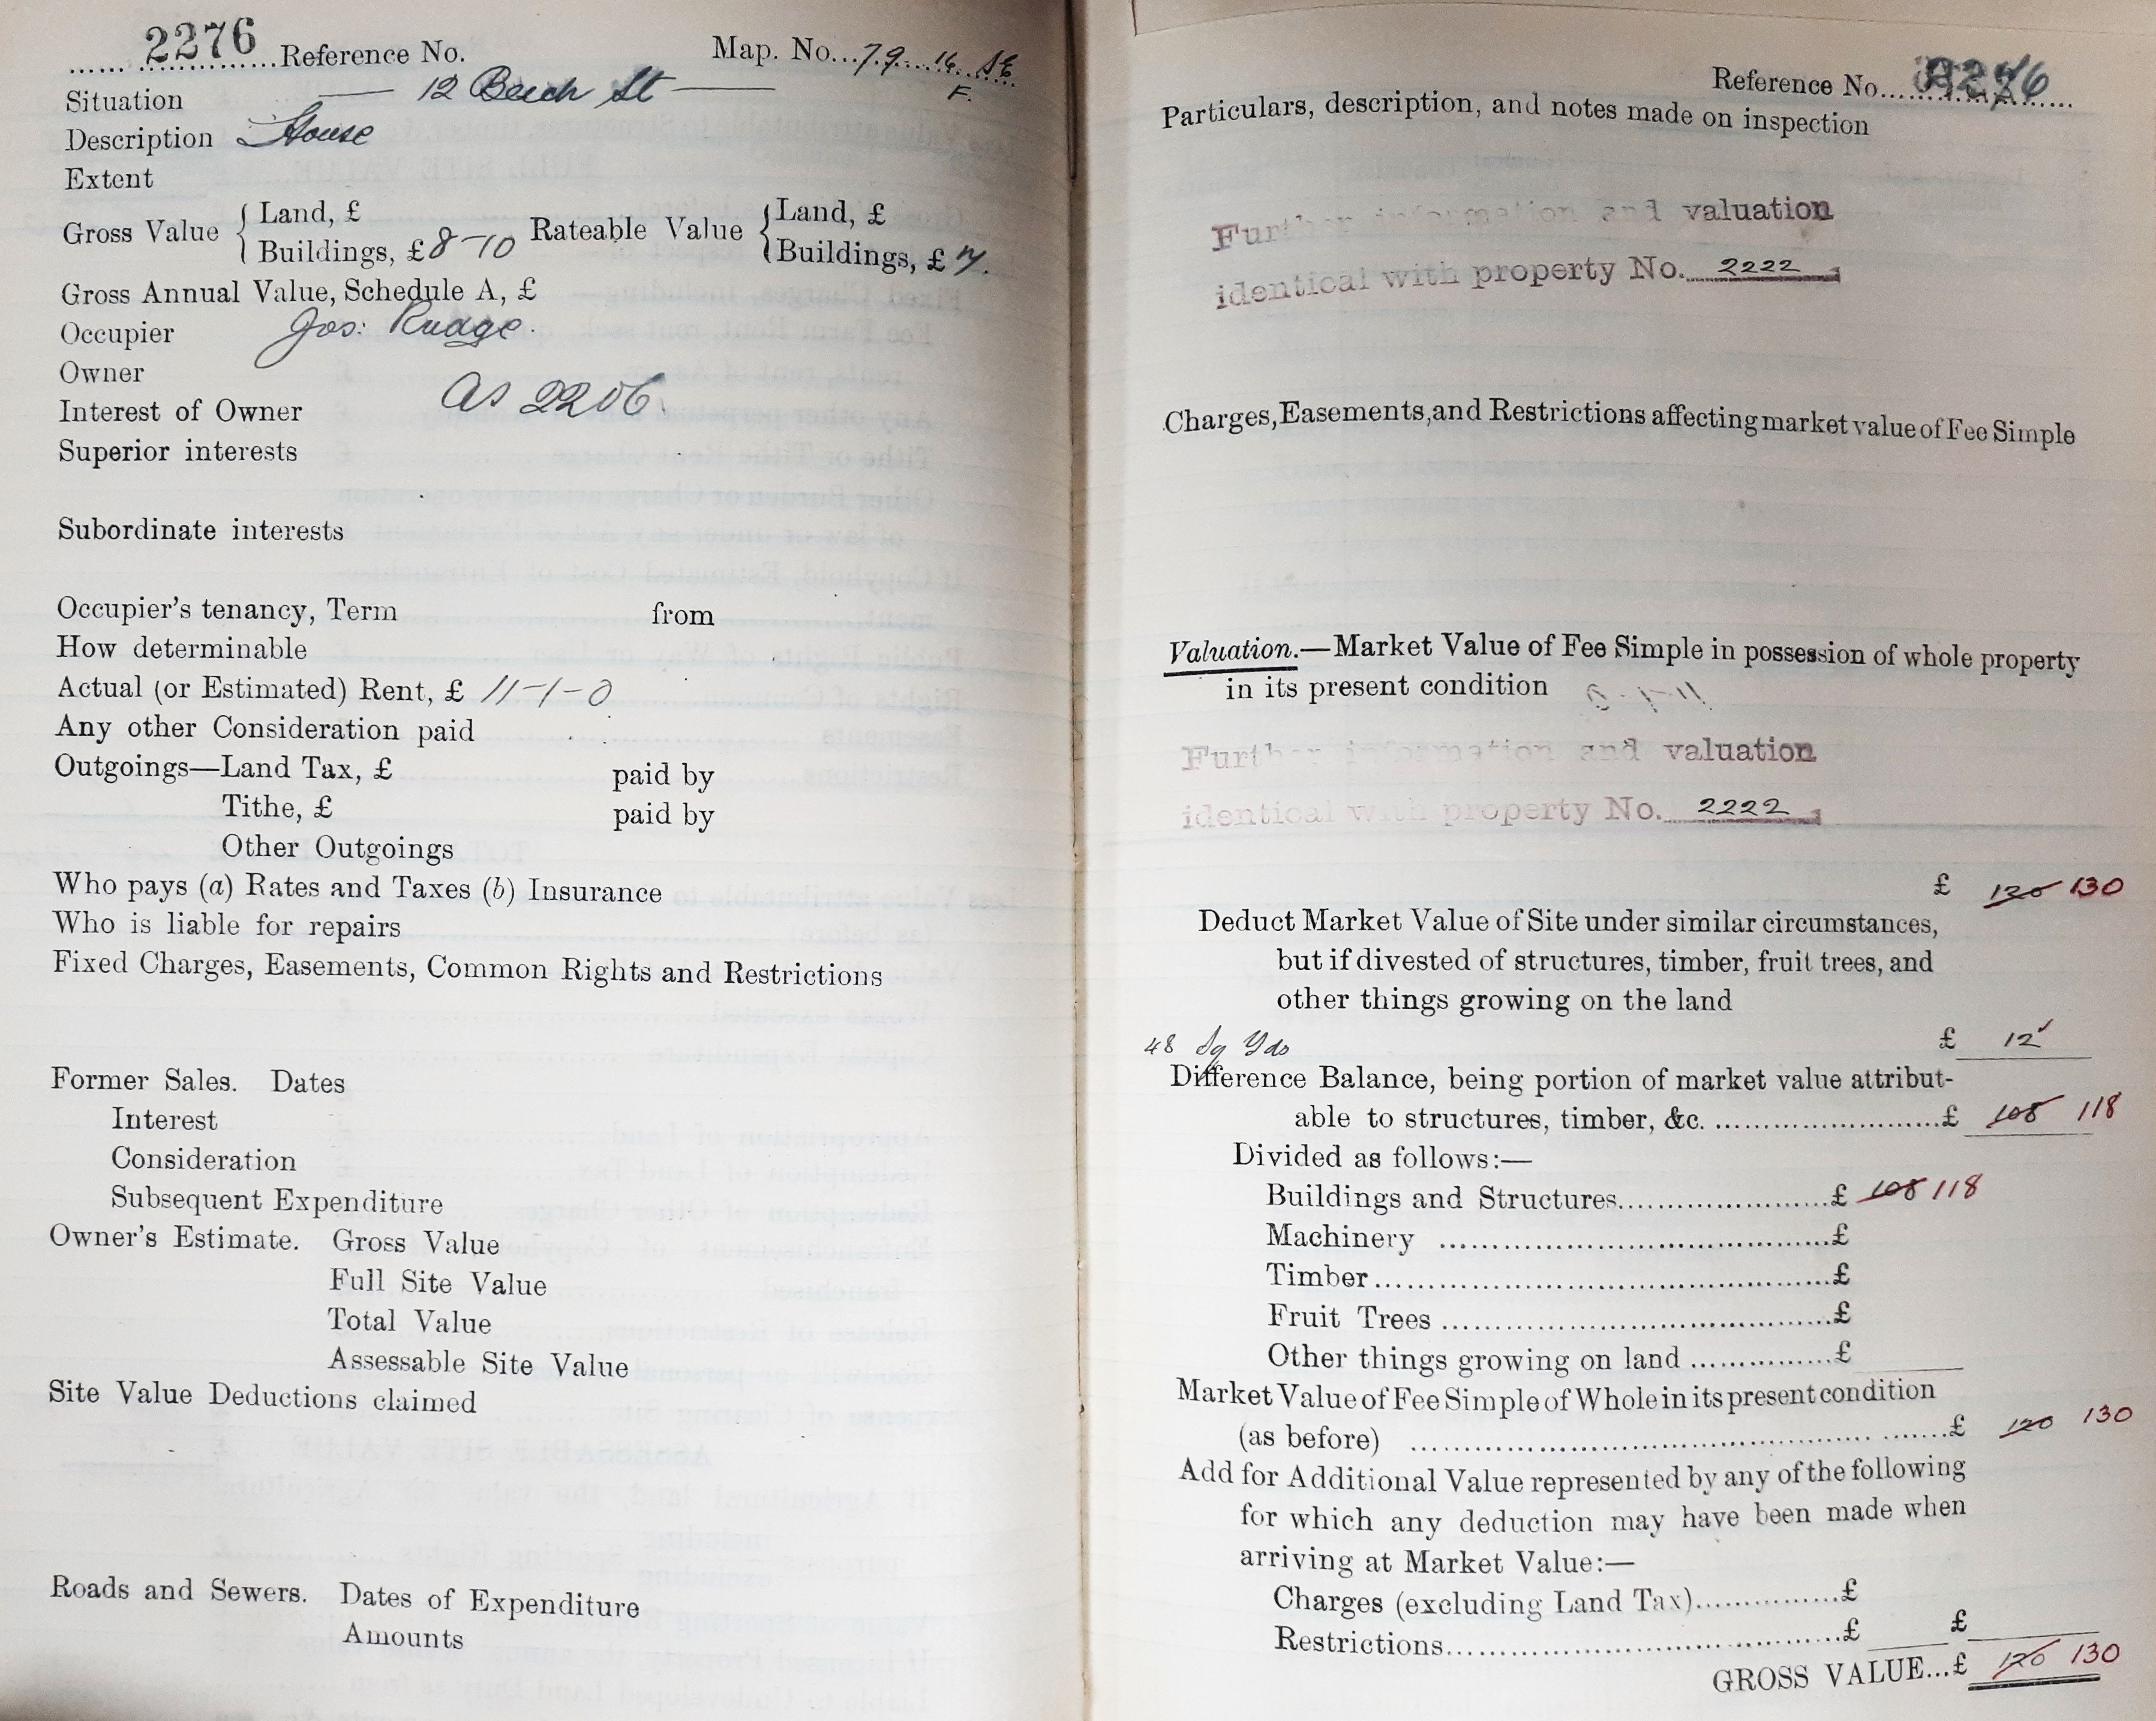 2276 Reference No. Map. No... 79. 16. SE.
F.
Situation 12 Beech St
Description House
Extent
Gross Value { Land, £ Rateable Value { Land, £
Buildings, £ 8-10 Buildings, £ 7.
Gross Annual Value, Schedule A, £
Occupier Jos: Rudge.
Owner
Interest of Owner As 2206.
Superior interests
Subordinate interests
Occupier's tenancy, Term from
How determinable
Actual (or Estimated) Rent, £ 11-1-0
Any other Consideration paid
Outgoings—Land Tax, £ paid by
Tithe, £ paid by
Other Outgoings
Who pays (a) Rates and Taxes (b) Insurance
Who is liable for repairs
Fixed Charges, Easements, Common Rights and Restrictions
Former Sales. Dates
Interest
Consideration
Subsequent Expenditure
Owner's Estimate. Gross Value
Full Site Value
Total Value
Assessable Site Value
Site Value Deductions claimed
Roads and Sewers. Dates of Expenditure
Amounts
Reference No. 2276
Particulars, description, and notes made on inspection
Further information and valuation
identical with property No. 2222
Charges, Easements, and Restrictions affecting market value of Fee Simple
Valuation.—Market Value of Fee Simple in possession of whole property
in its present condition
Further information and valuation
identical with property No. 2222
£ 120 130
Deduct Market Value of Site under similar circumstances,
but if divested of structures, timber, fruit trees, and
other things growing on the land
48 Sq Yds £ 12
Difference Balance, being portion of market value attribut-
able to structures, timber, &c. £ 108 118
Divided as follows:—
Buildings and Structures £ 108 118
Machinery £
Timber £
Fruit Trees £
Other things growing on land £
Market Value of Fee Simple of Whole in its present condition
(as before) £ 120 130
Add for Additional Value represented by any of the following
for which any deduction may have been made when
arriving at Market Value:—
Charges (excluding Land Tax) £
Restrictions £ £
GROSS VALUE...£ 120 130